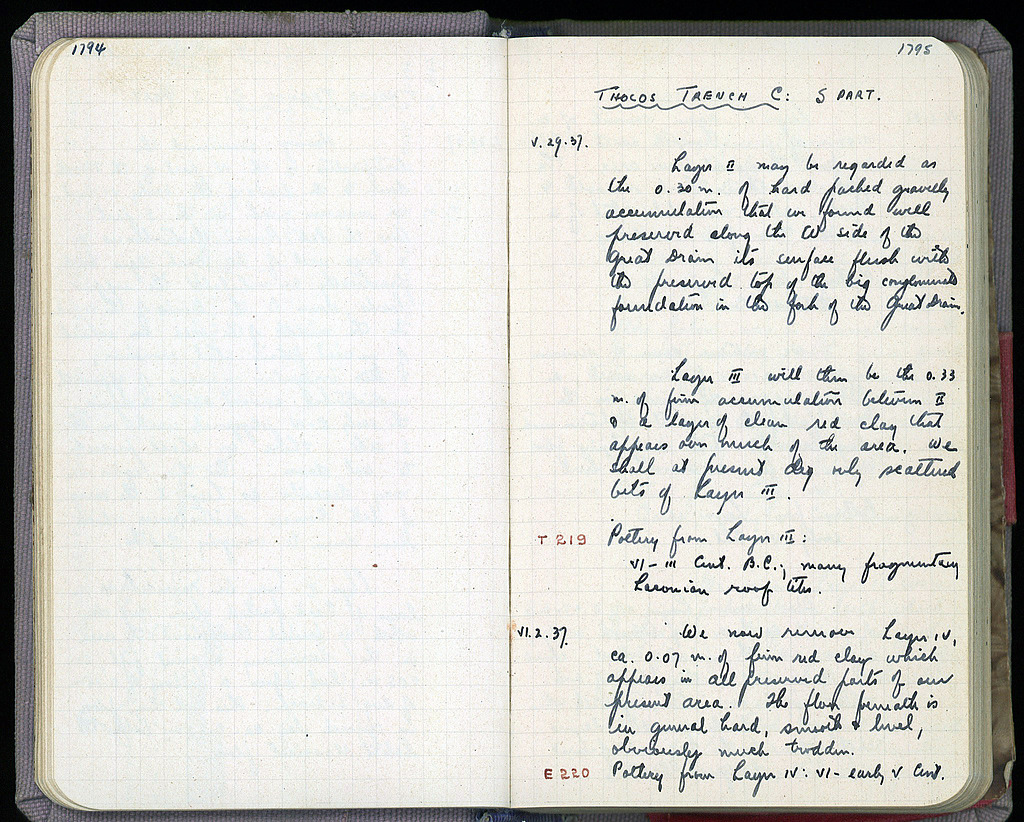 1794
1795
THOLOS TRENCH C: S PART.
V.29.37.
Layer II may be regarded as
the 0.30 m. of hard packed gravelly
accumulation that we found well
preserved along the W side of the
Great Drain its surface flush with
the preserved top of the big conglomerate
foundation in the fork of the Great Drain.
Layer III will then be the 0.33
m. of firm accumulation between II
& a layer of clean red clay that
appears over much of the area. We
shall at present dig only scattered
bits of Layer III.
T 219 Pottery from Layer III:
VI – III Cent. B.C.; many fragmentary
Laconian roof tiles.
VI.2.37. We now remove Layer IV,
ca. 0.07 m. of firm red clay which
appears in all preserved parts of our
present area. The floor beneath is
in general hard, smooth & level,
obviously much trodden.
E 220 Pottery from Layer IV: VI – early V Cent.